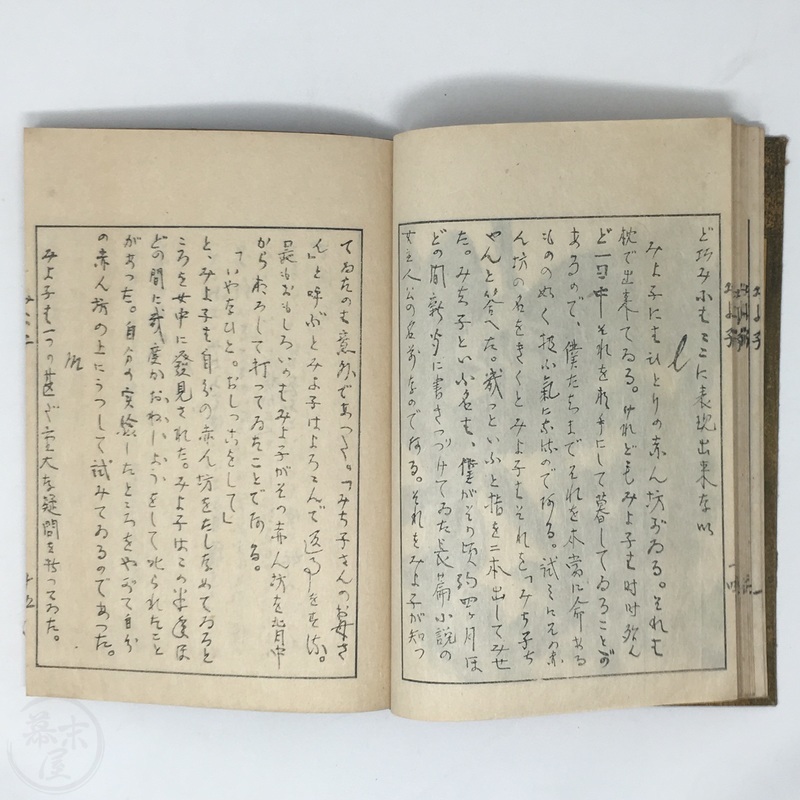 ど巧みにもここに表現出来ない
みよ子にもひとりの赤ん坊がゐる。それも
枕で出来てゐる。けれどもみよ子は時時殆ん
ど一日中それを相手にして暮してゐることが
あるので、僕たちまでそれを本當に命ある
ものの如く扱ふ氣になるのである。試みにその赤
ん坊の名をきくとみよ子はそれを「みち子ち
やんと答へた。歳はといふと指を二本出してみせ
た。みち子といふ名は、僕がその頃約四ヶ月ほ
どの間新聞に書きつづけてゐた長篇小説の
女主人公の名前なのである。それをみよ子が知つ
てゐたのも意外であつた。「みち子さんのお母さ
ん」と呼ぶとみよ子はよろこんで返事をする。
最もおもしろいのはみよ子がその赤ん坊を背中
からおろして打つてゐたことである。
「いやなひと。おしつこをして」
と、みよ子は自分の赤ん坊をたしなめてゐると
ころを女中に發見された。みよ子はこの半年ほ
どの間に幾度かおねしよをして叱られたこと
があつた。自分の實驗したところをやがて自分
の赤ん坊の上にうつして試みてゐるのであつた。
みよ子は一つの甚だ重大な疑問を持つてゐた。
幕末屋